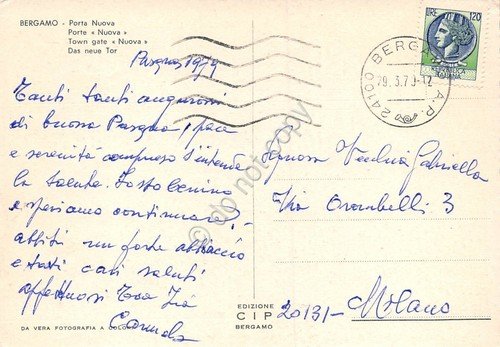 BERGAMO - Porta Nuova
Porte « Nuova »
Town gate « Nuova »
Das neue Tor
Pasqua 1979
Tanti tanti auguroni
di buona Pasqua, pace
e serenità compreso s'intende
la salute. Io sto benino
e speriamo continuare,
un forte abbraccio
e tanti cari saluti
affettuosi tua zia
LIRE 120
24100 BERGAMO A.P.
29.3.7 -12
Vecchia Gabriella
Via 3
20131 - Milano
EDIZIONE
C I P
BERGAMO
DA VERA FOTOGRAFIA A COLORI
do not copy